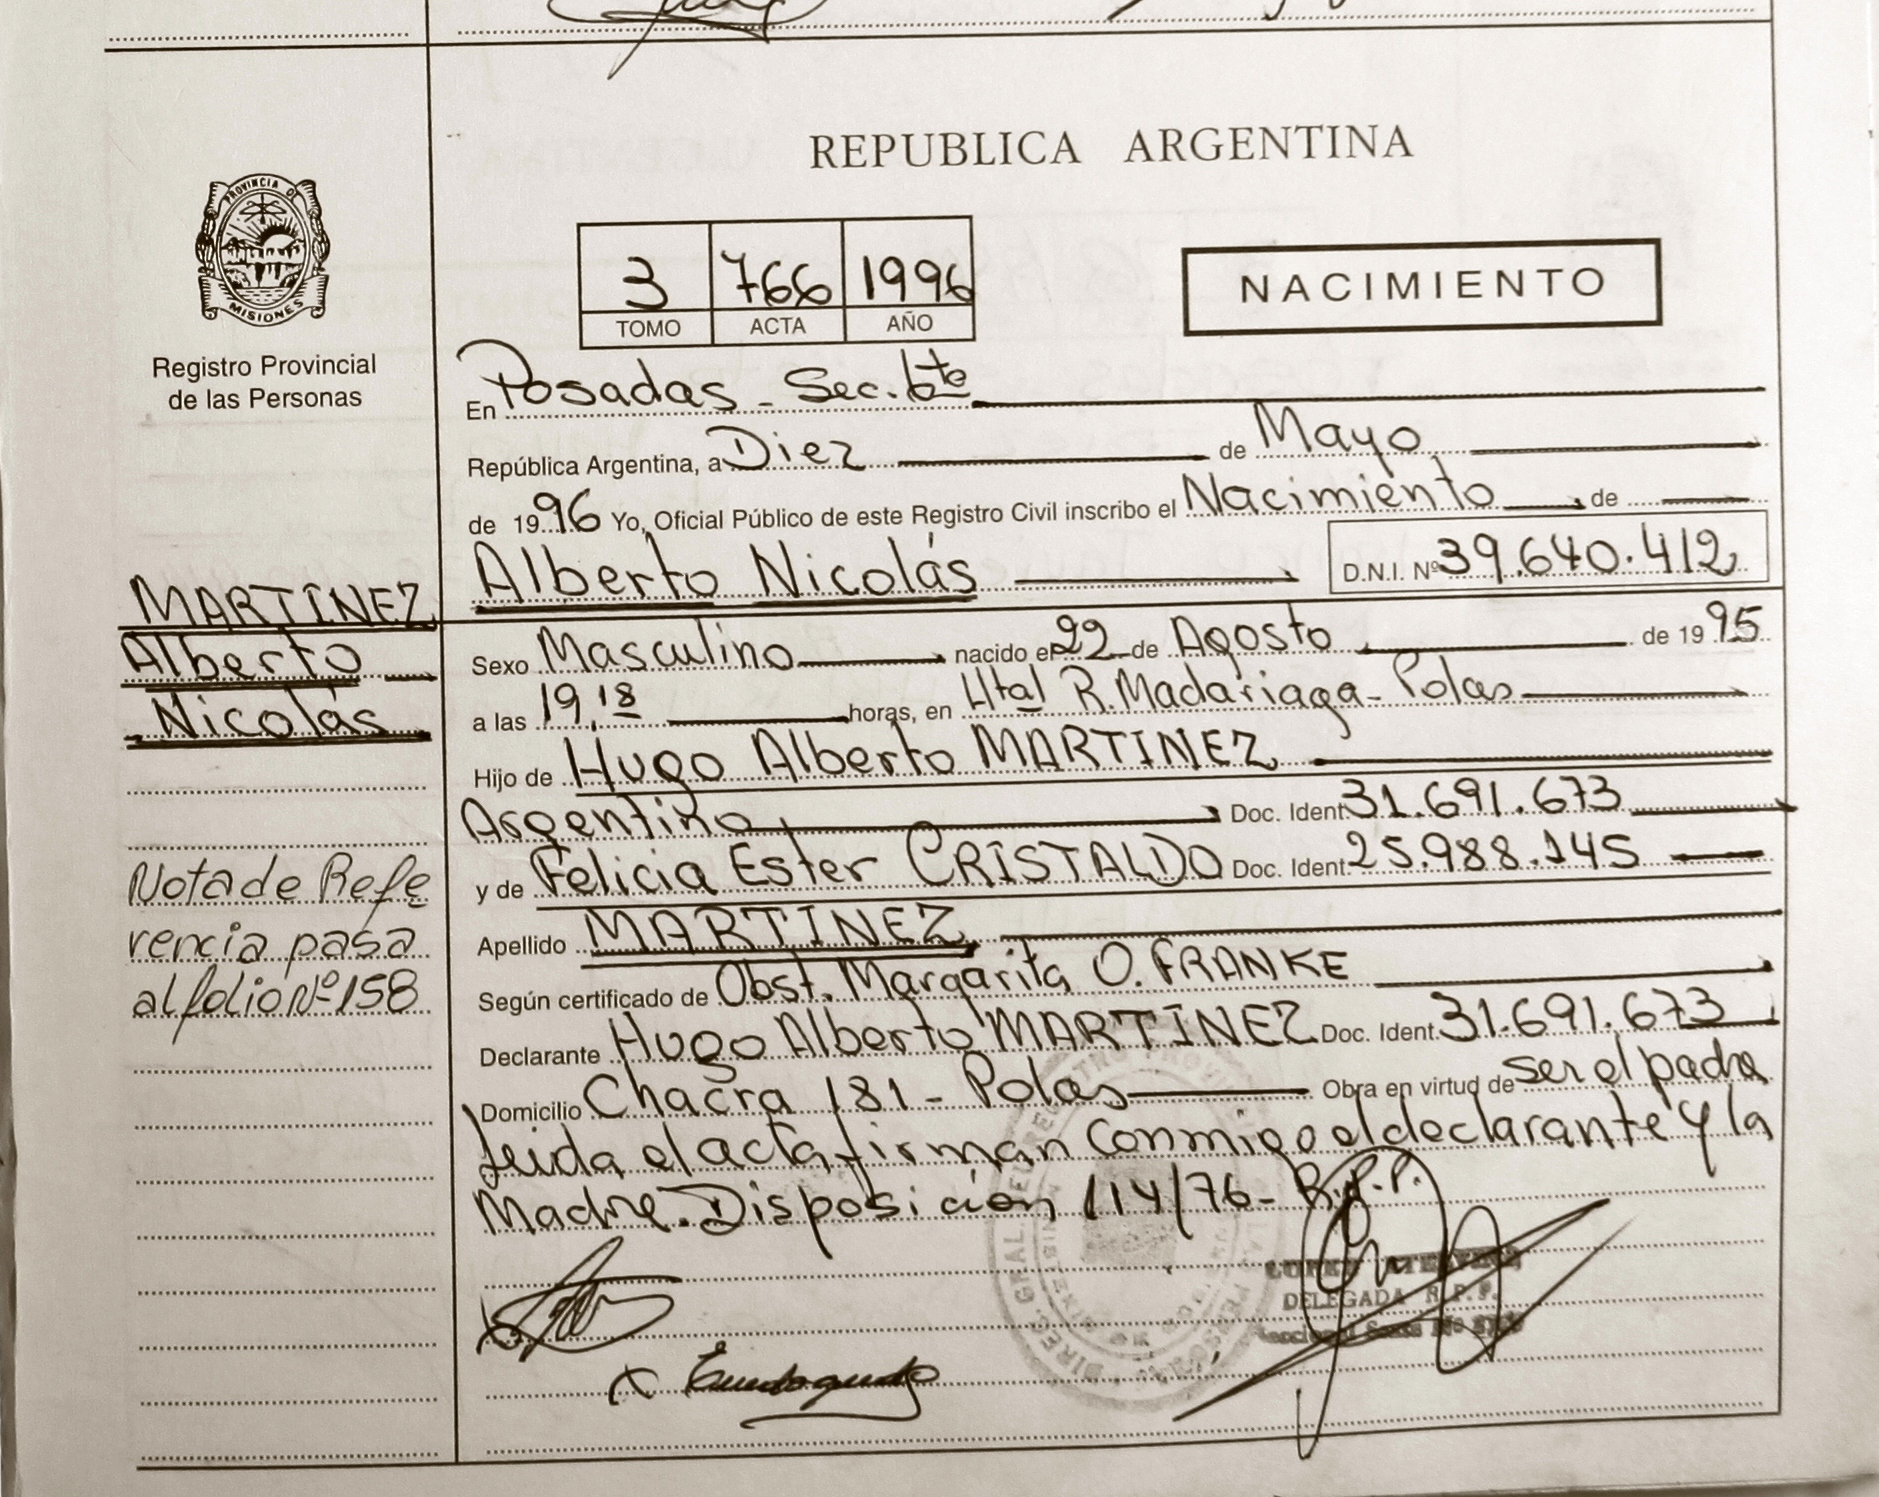 REPUBLICA ARGENTINA
PROVINCIA DE MISIONES
Registro Provincial
de las Personas
3 766 1996
TOMO ACTA AÑO
NACIMIENTO
En Posadas - Sec. 6ta
República Argentina, a Diez de Mayo
de 1996 Yo, Oficial Público de este Registro Civil inscribo el Nacimiento de
Alberto Nicolás D.N.I. Nº 39.640.412
MARTINEZ
Alberto
Nicolás
Sexo Masculino nacido el 22 de Agosto de 1995
a las 19,18 horas, en Htal R. Madariaga - Pdas
Hijo de Hugo Alberto MARTINEZ
Argentino Doc. Ident. 31.691.673
y de Felicia Ester CRISTALDO Doc. Ident. 25.988.145
Apellido MARTINEZ
Según certificado de Obst. Margarita O. FRANKE
Declarante Hugo Alberto MARTINEZ Doc. Ident. 31.691.673
Domicilio Chacra 181 - Pdas Obra en virtud de ser el padre
leida el acta, firman conmigo el declarante y la
Madre. Disposición 114/76 - R.P.P.
Nota de Refe
rencia pasa
al folio Nº 158
DELEGADA R.P.P.